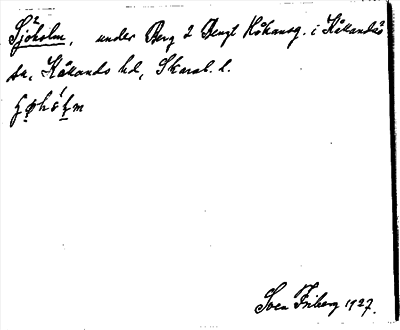 Sjöholm, under Berg 2 Bengt Håkansg. i Kållands
sn, Kållands hd, Skarab. l.
Sven Friberg 1927.